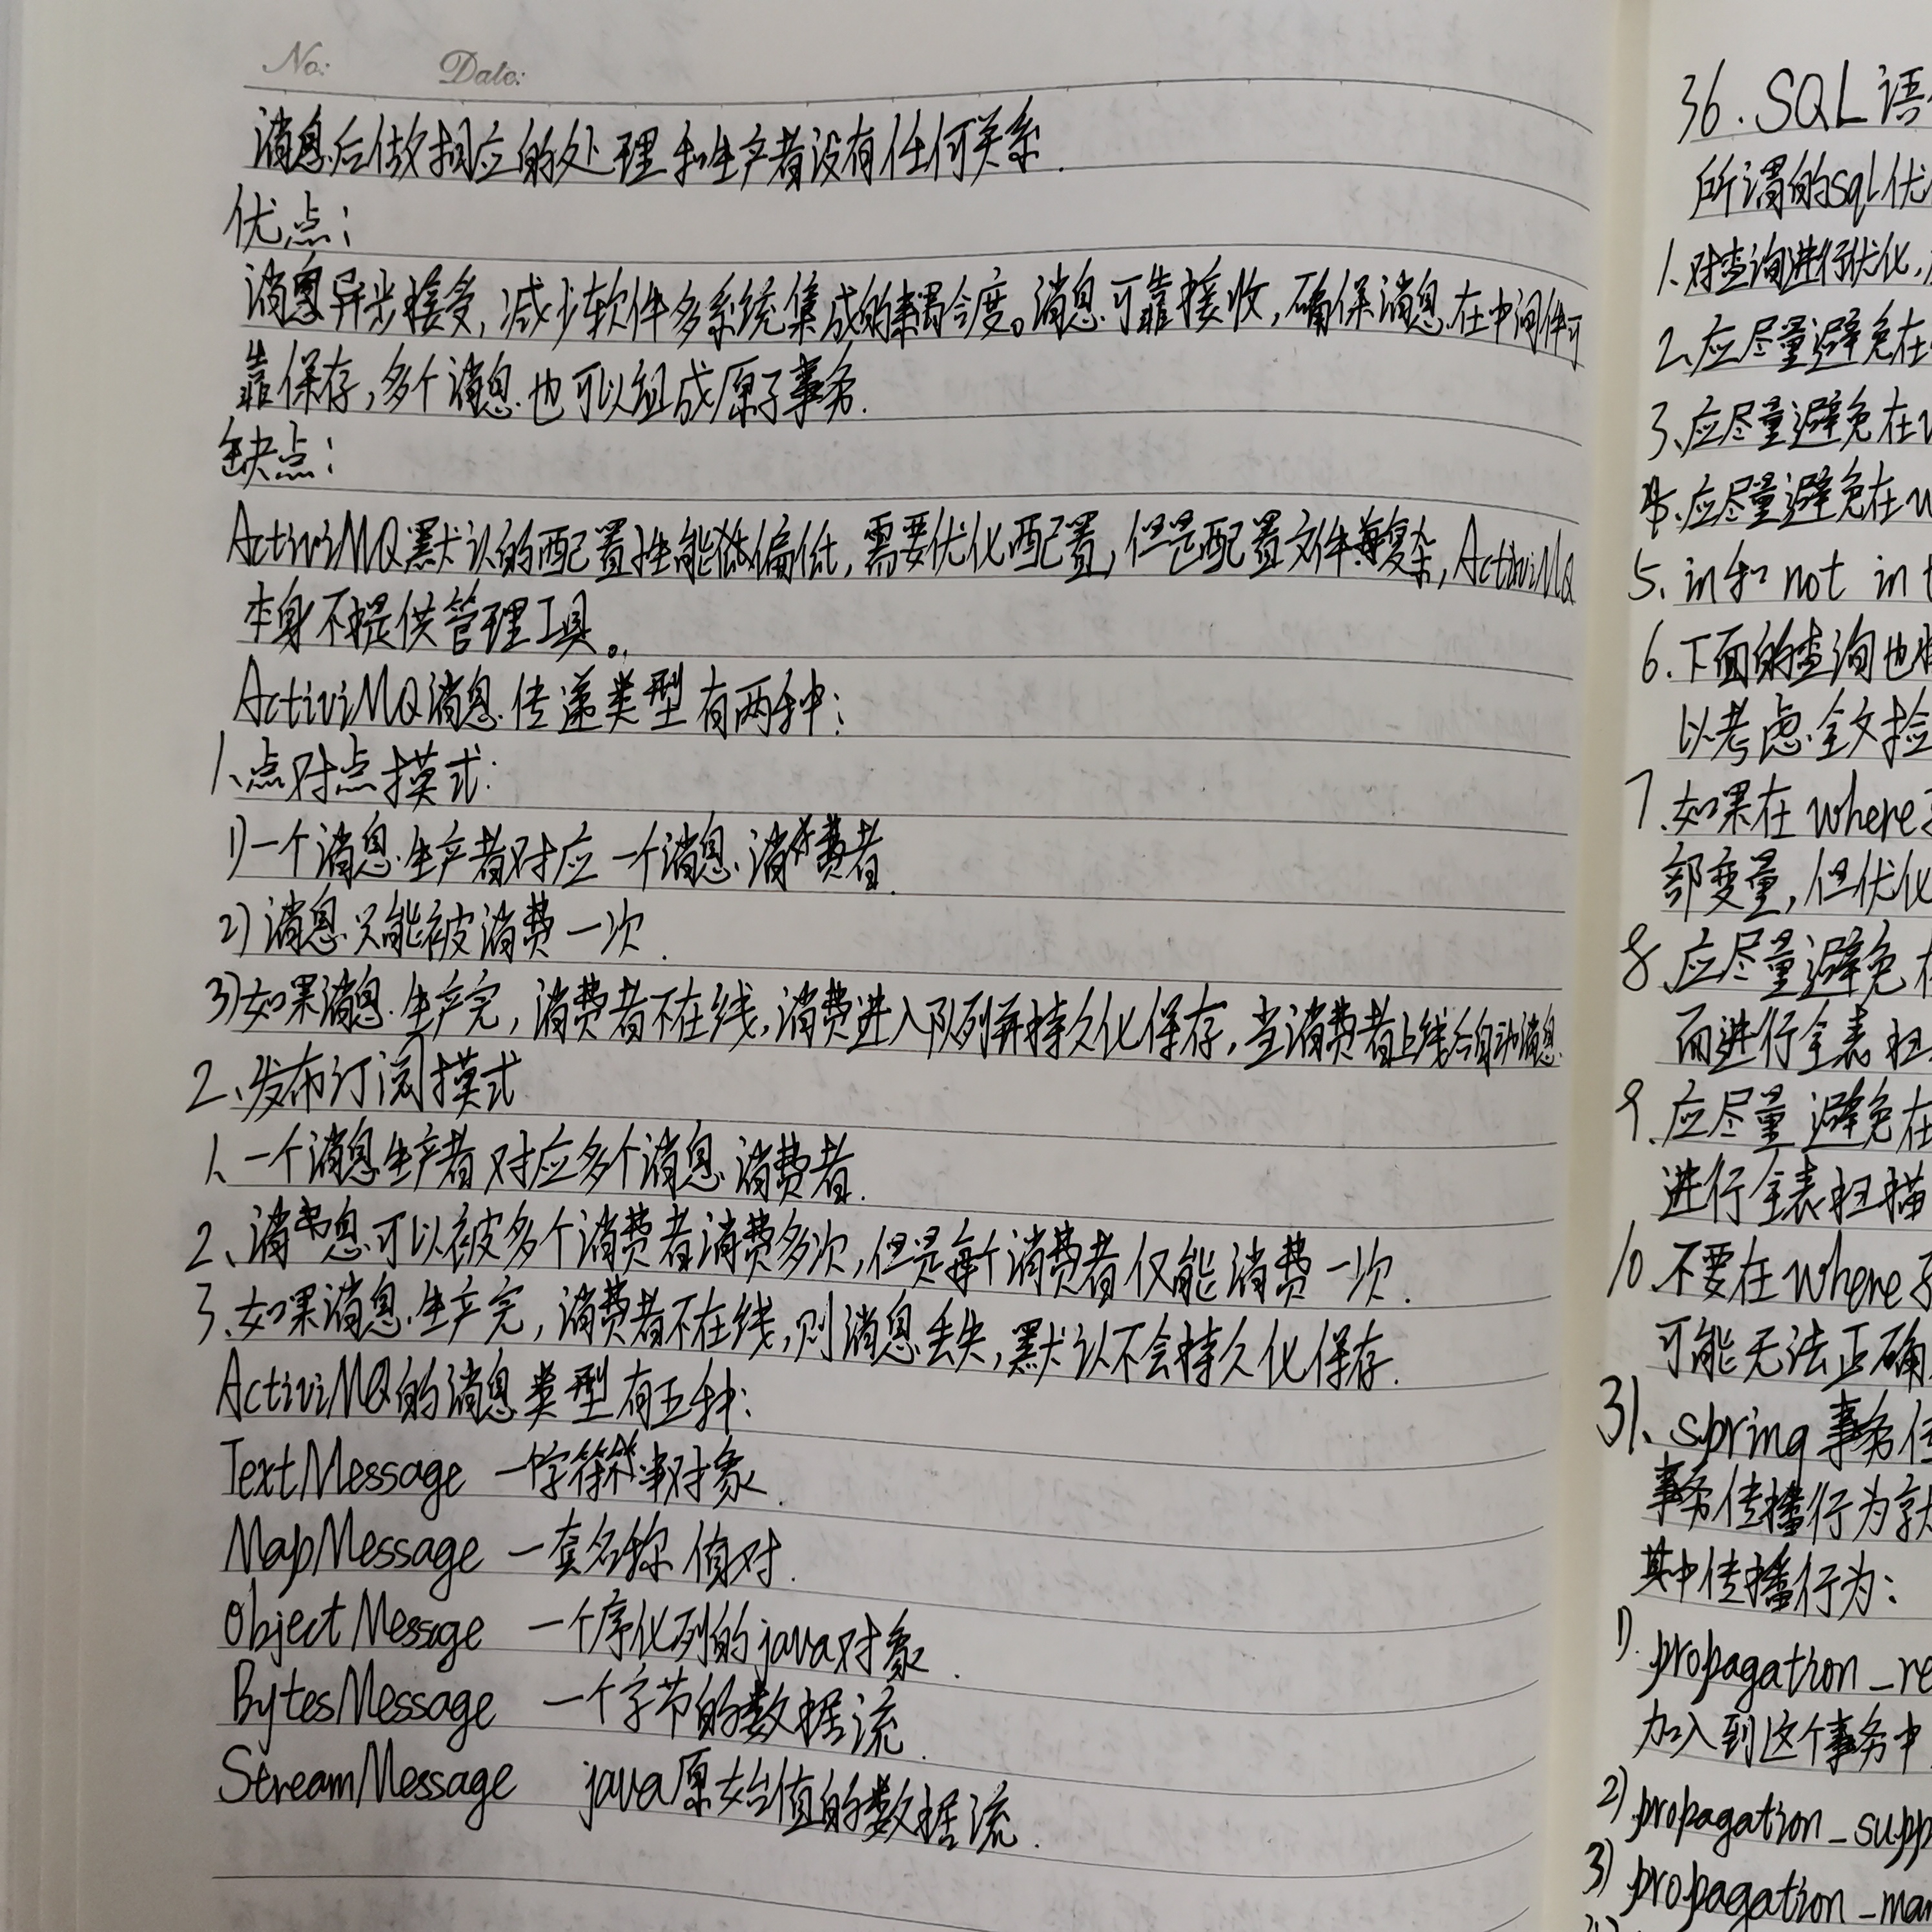 No: Date:
消息后做相应的处理和生产者没有任何关系.
优点:
消息异步接受,减少软件多系统集成的耦合度。消息可靠接收,确保消息在中间件可
靠保存,多个消息也可以组成原子事务.
缺点:
ActiviMQ默认的配置性能偏低,需要优化配置,但是配置文件复杂,ActiviMQ
本身不提供管理工具。
ActiviMQ消息传递类型有两种:
1、点对点模式:
1)一个消息生产者对应一个消息消费者.
2)消息只能被消费一次.
3)如果消息生产完,消费者不在线,消费进入队列并持久化保存,当消费者上线后自动消息.
2、发布订阅模式
1、一个消息生产者对应多个消息消费者.
2、消息可以被多个消费者消费多次,但是每个消费者仅能消费一次.
3、如果消息生产完,消费者不在线,则消息丢失,默认不会持久化保存.
ActiviMQ的消息类型有五种:
TextMessage 一个字符串对象.
MapMessage 一套名称值对.
Object Message 一个序化列的java对象.
BytesMessage 一个字节的数据流.
StreamMessage java原始值的数据流.
36.SQL语
所谓的sql优
1.对查询进行优化,
2、应尽量避免在
3、应尽量避免在w
4.应尽量避免在w
5、in和not in
6.下面的查询也
以考虑全文检
7.如果在where
部变量,但优化
8、应尽量避免
而进行全表扫
9.应尽量避免在
进行全表扫描
10.不要在where
可能无法正确
31、spring事务传
事务传播行为
其中传播行为:
1).propagation_re
加入到这个事务中
2)propagation_supp
3)propagation_man